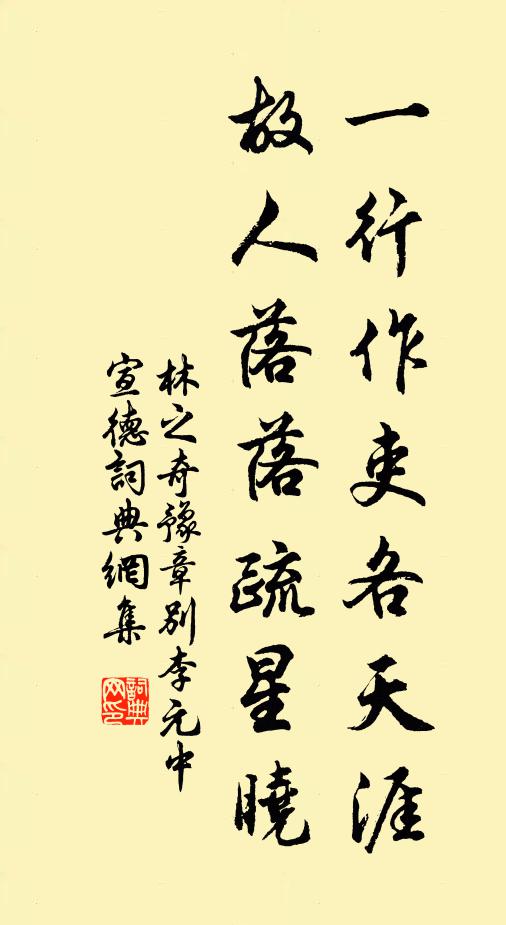 一行作吏各天涯
故人落落疏星曉
林之奇豫章別李元中
宣德詞典網集
詞典网印